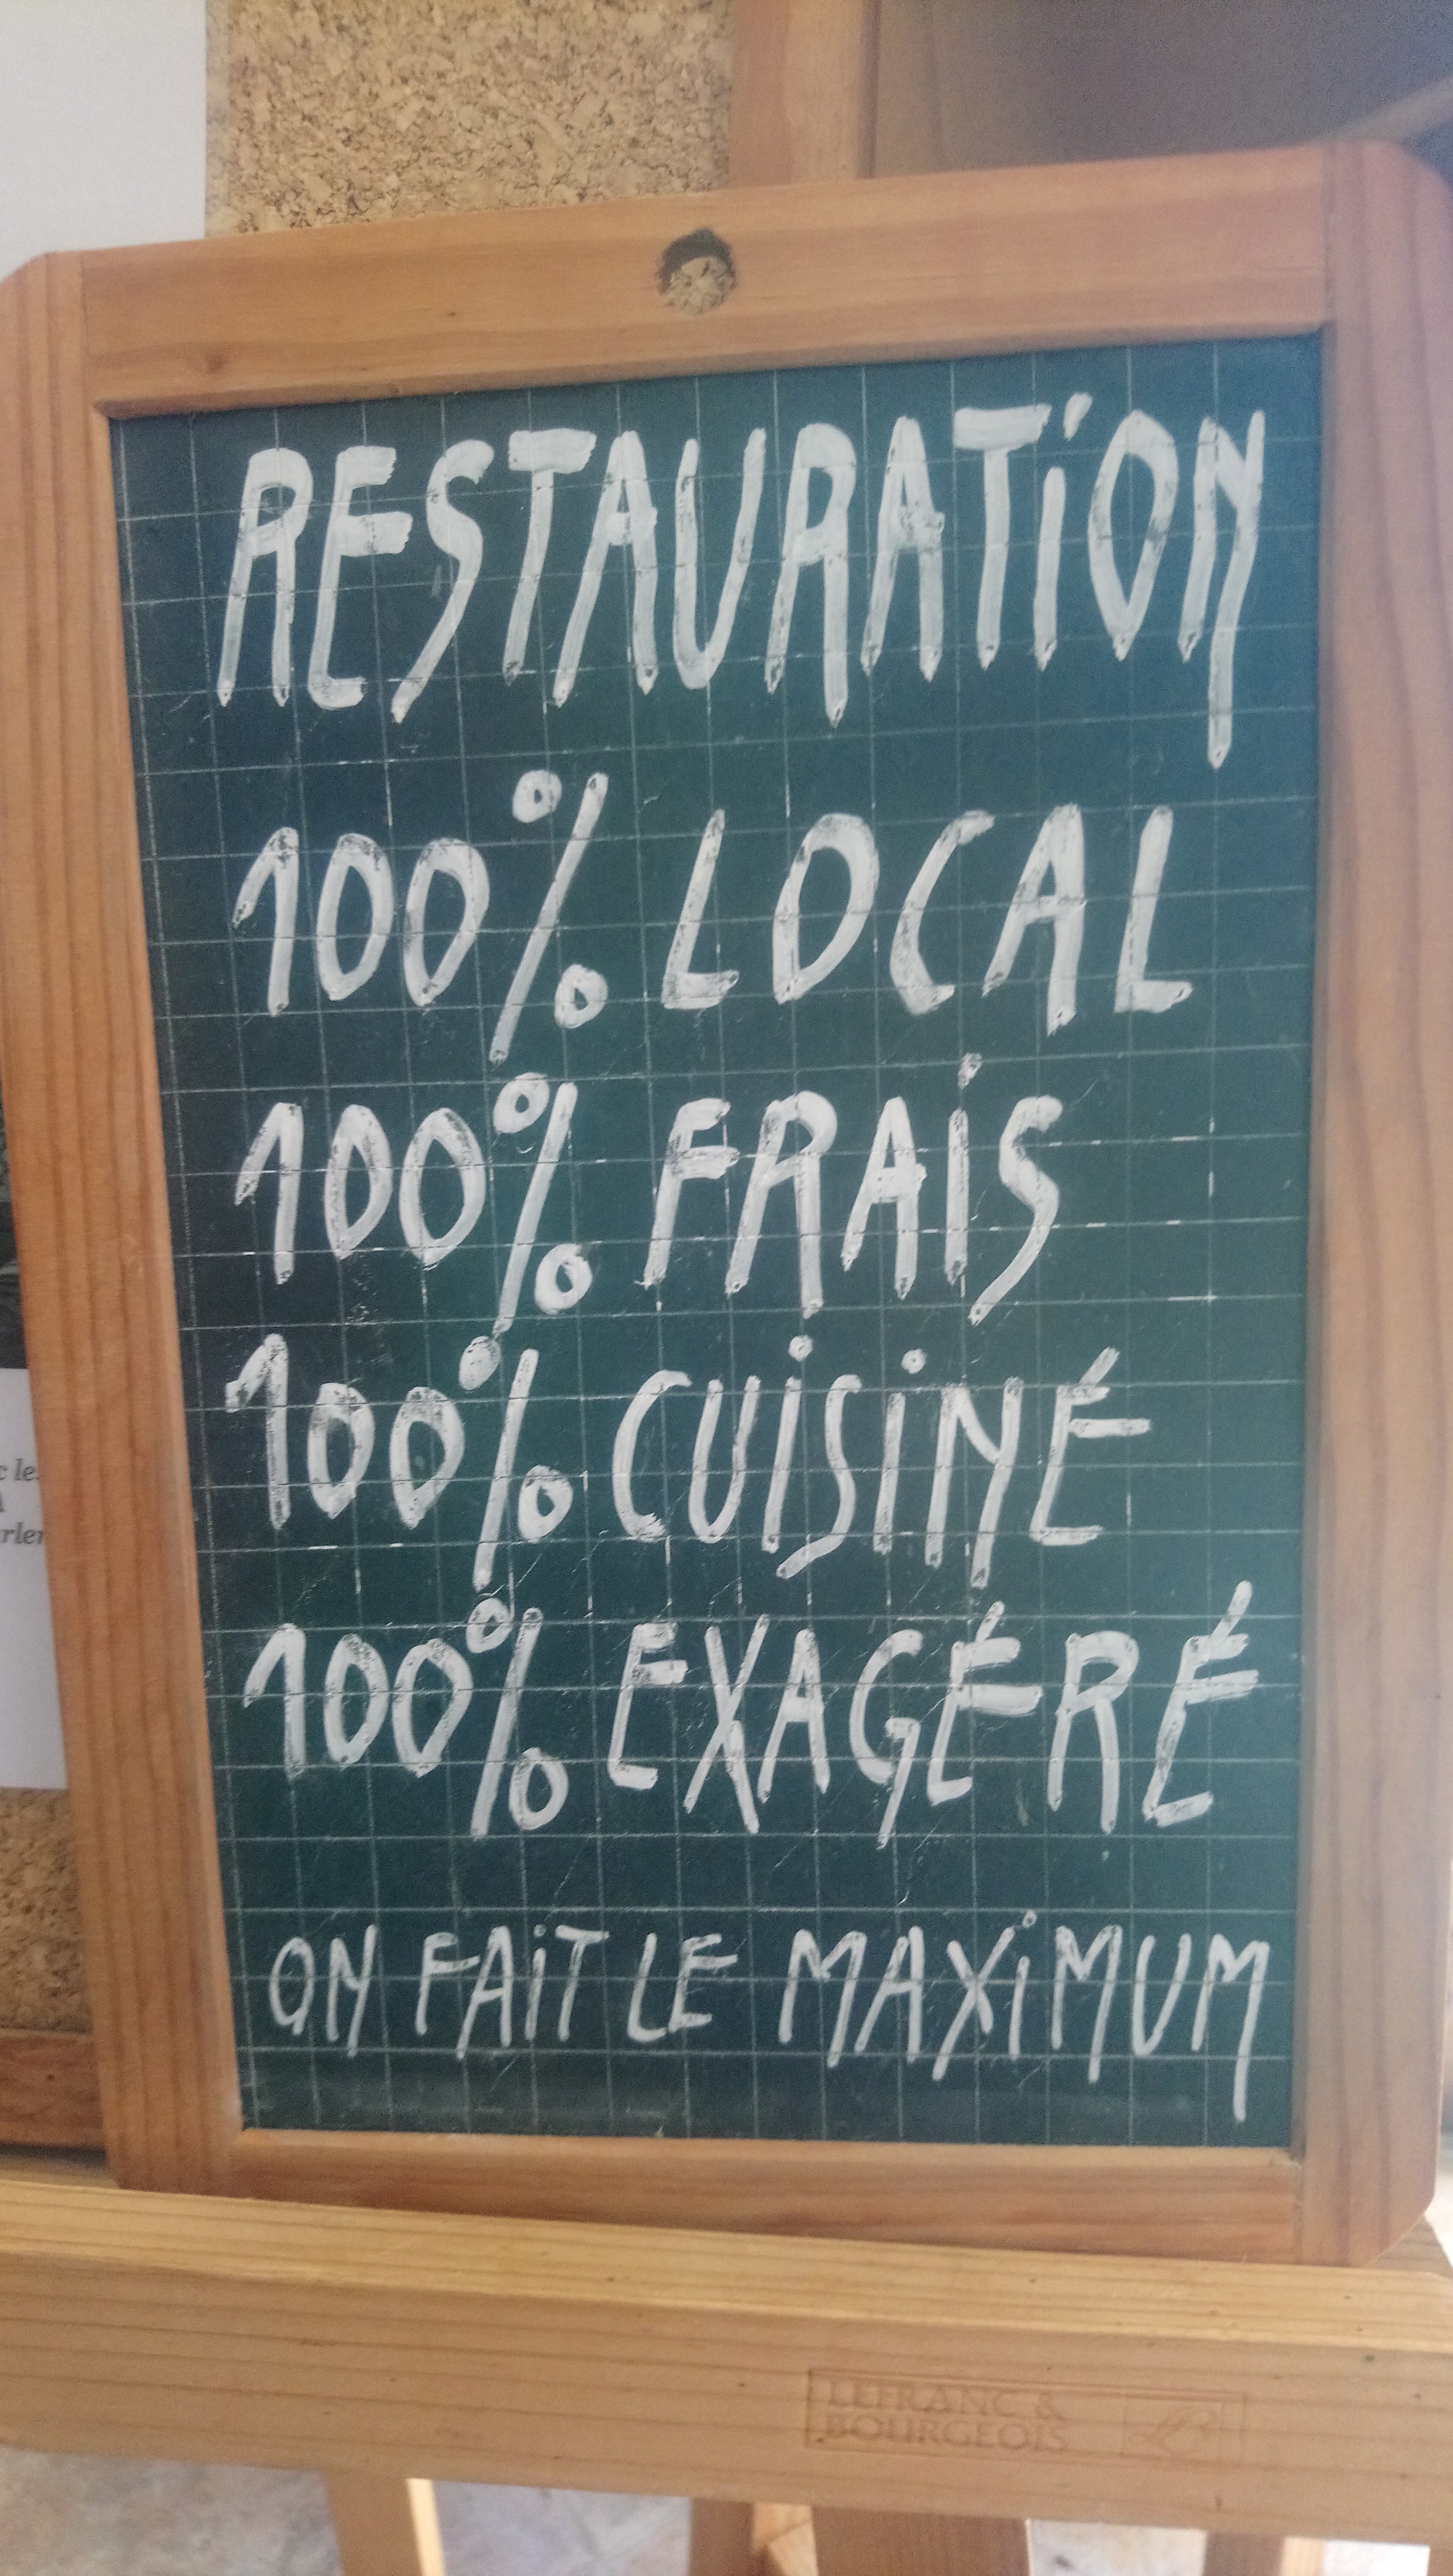 RESTAURATION
100% LOCAL
100% FRAIS
100% CUISINÉ
100% EXAGÉRÉ
ON FAIT LE MAXIMUM
LEFRANC &
BOURGEOIS